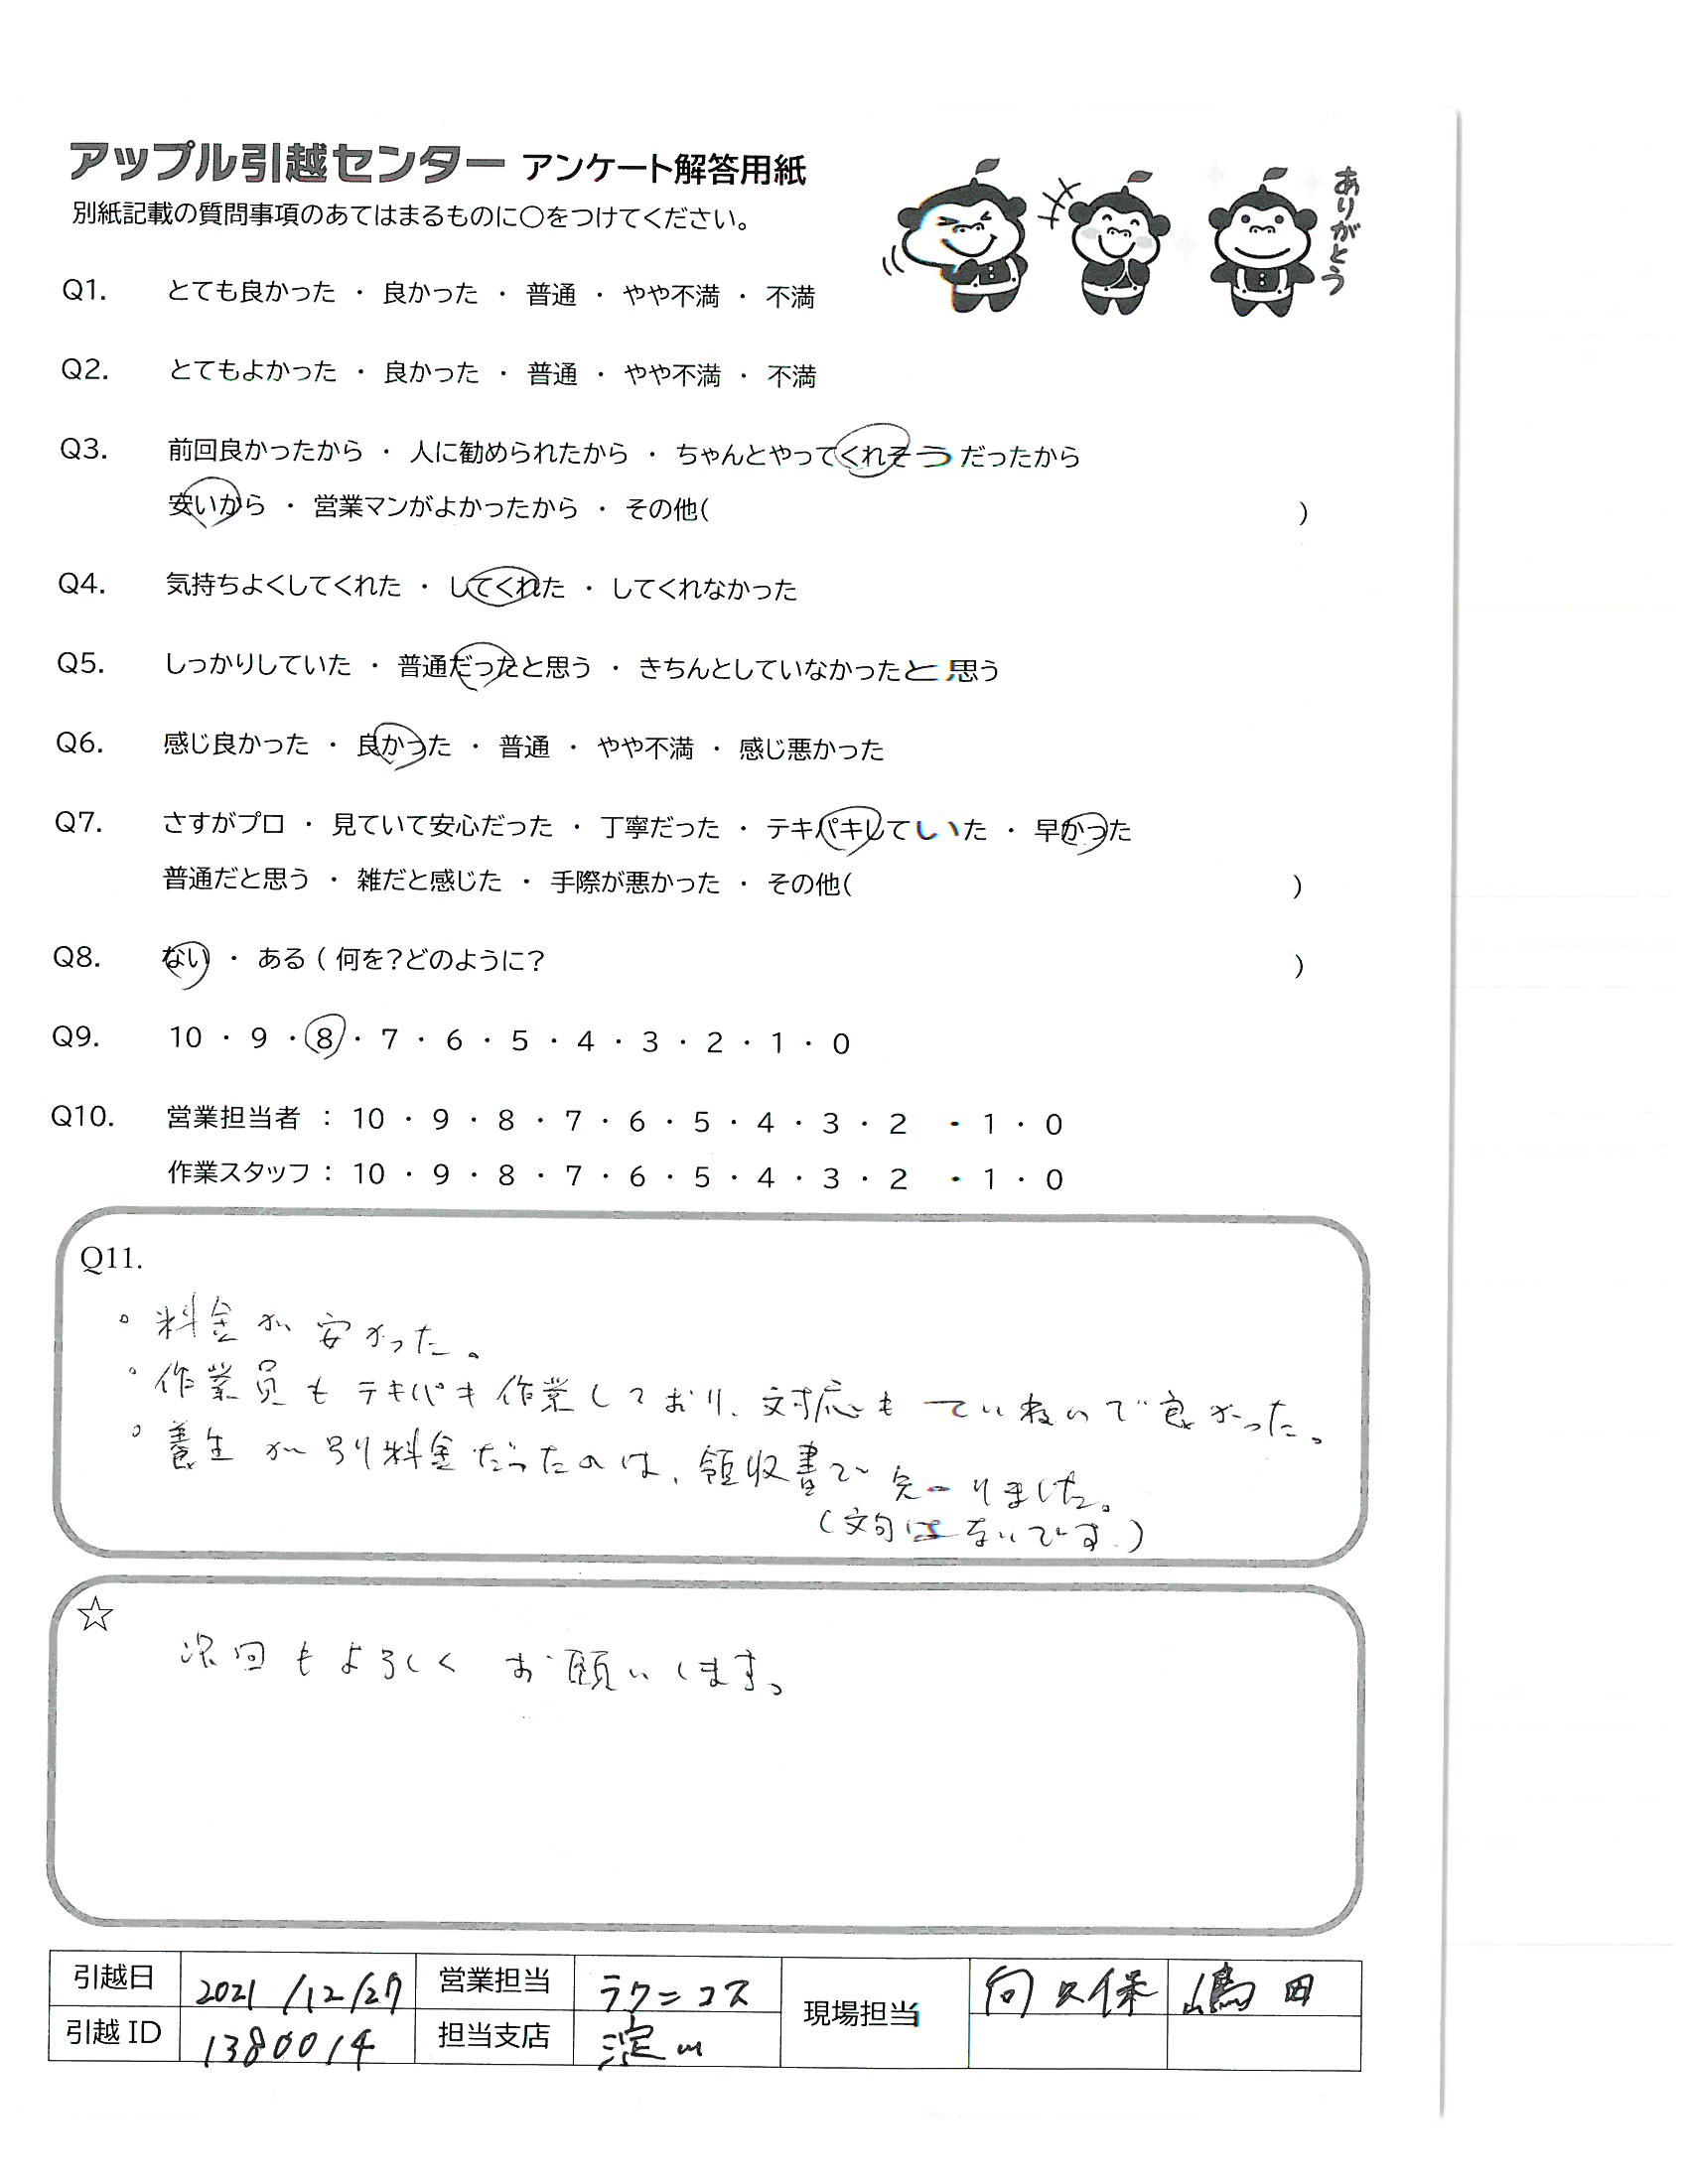 アップル引越センター アンケート解答用紙
別紙記載の質問事項のあてはまるものに〇をつけてください。
ありがとう
Q1. とても良かった ・ 良かった ・ 普通 ・ やや不満 ・ 不満
Q2. とてもよかった ・ 良かった ・ 普通 ・ やや不満 ・ 不満
Q3. 前回良かったから ・ 人に勧められたから ・ ちゃんとやってくれそうだったから
安いから ・ 営業マンがよかったから ・ その他( )
Q4. 気持ちよくしてくれた ・ してくれた ・ してくれなかった
Q5. しっかりしていた ・ 普通だったと思う ・ きちんとしていなかったと思う
Q6. 感じ良かった ・ 良かった ・ 普通 ・ やや不満 ・ 感じ悪かった
Q7. さすがプロ ・ 見ていて安心だった ・ 丁寧だった ・ テキパキしていた ・ 早かった
普通だと思う ・ 雑だと感じた ・ 手際が悪かった ・ その他( )
Q8. ない ・ ある ( 何を?どのように? )
Q9. 10 ・ 9 ・ 8 ・ 7 ・ 6 ・ 5 ・ 4 ・ 3 ・ 2 ・ 1 ・ 0
Q10. 営業担当者 : 10 ・ 9 ・ 8 ・ 7 ・ 6 ・ 5 ・ 4 ・ 3 ・ 2 ・ 1 ・ 0
作業スタッフ : 10 ・ 9 ・ 8 ・ 7 ・ 6 ・ 5 ・ 4 ・ 3 ・ 2 ・ 1 ・ 0
Q11.
。料金が安かった。
。作業員もテキパキ作業しており、対応もていねいで良かった。
。養生が別料金だったのは、領収書で知りました。
(文句はないです。)
☆
次回もよろしくお願いします。
引越日 2021/12/27 営業担当 ラクニコス 現場担当 向久保 嶋田
引越ID 1380014 担当支店 淀川